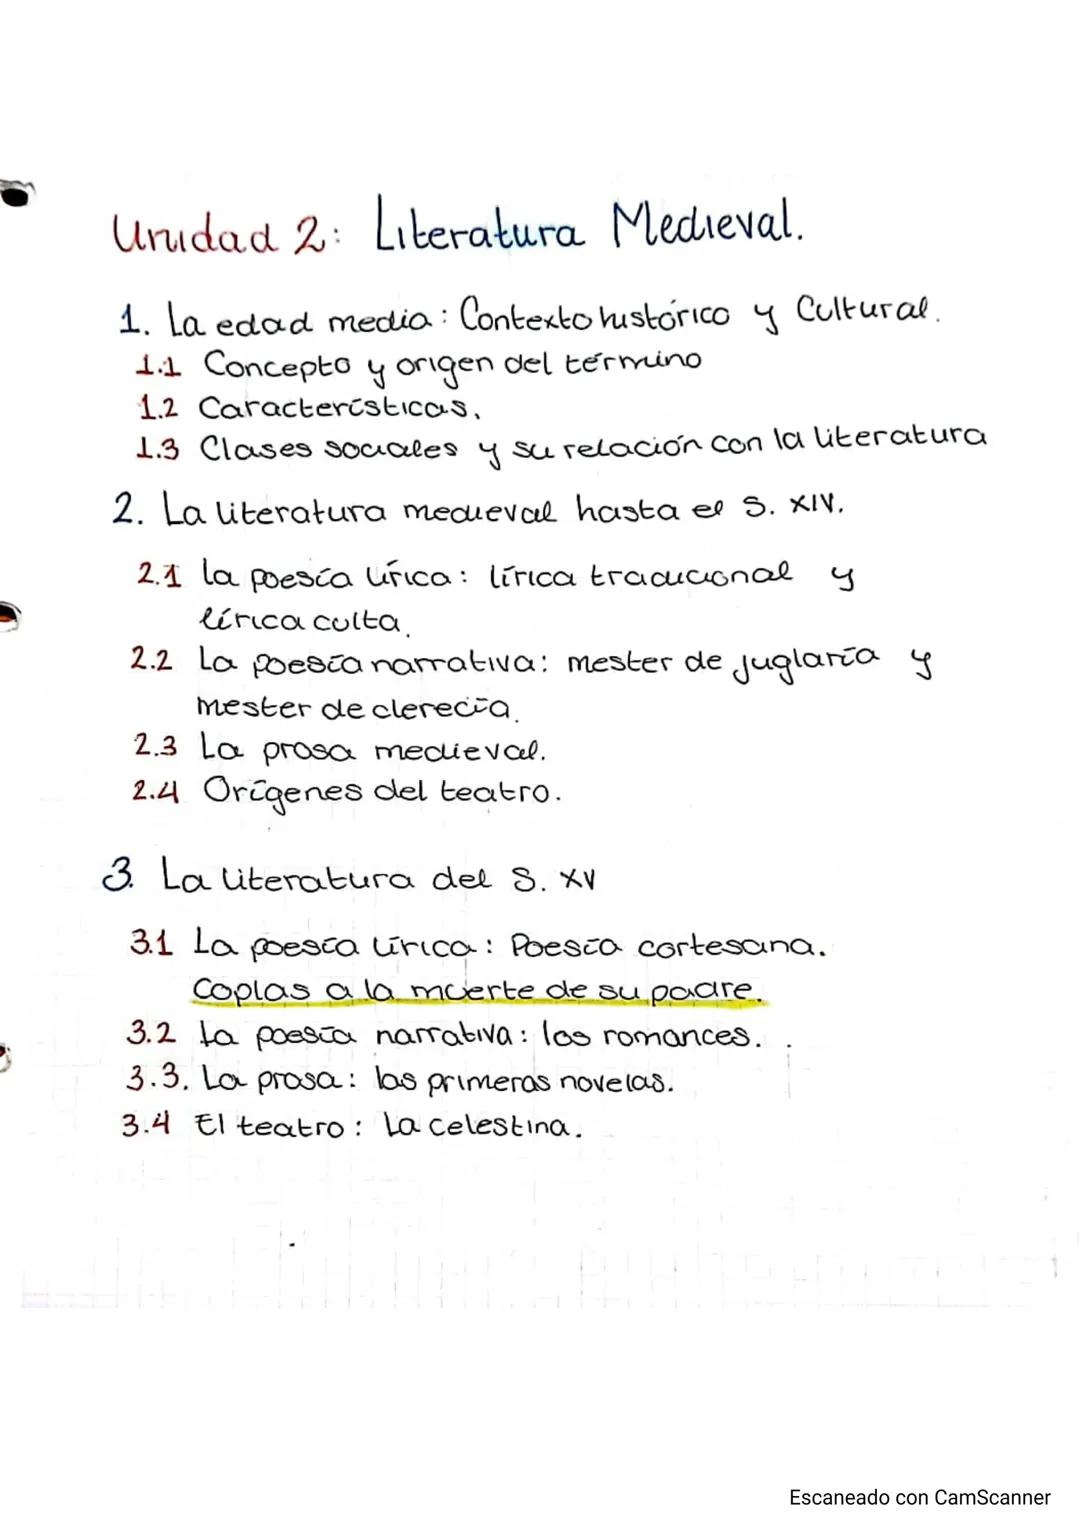 Unidad 2: Literatura Medieval.
1. La edad media: Contexto histórico y Cultural.
1.1 Concepto y origen del término
1.2 Características.
1.3 Clases sociales y su relación con la literatura
2. La literatura medieval hasta el S. XIV.
2.1 La poesía lírica: lírica tradicional y
lírica culta.
2.2 La poesía narrativa: mester de juglaría y
mester de clerecía.
2.3 La prosa medieval.
2.4 Orígenes del teatro.
3. La literatura del S. XV
3.1 La poesía lírica: Poesía cortesana.
Coplas a la muerte de su padre.
3.2 La poesía narrativa: los romances.
3.3. La prosa: las primeras novelas.
3.4 El teatro: La celestina.
Escaneado con CamScanner